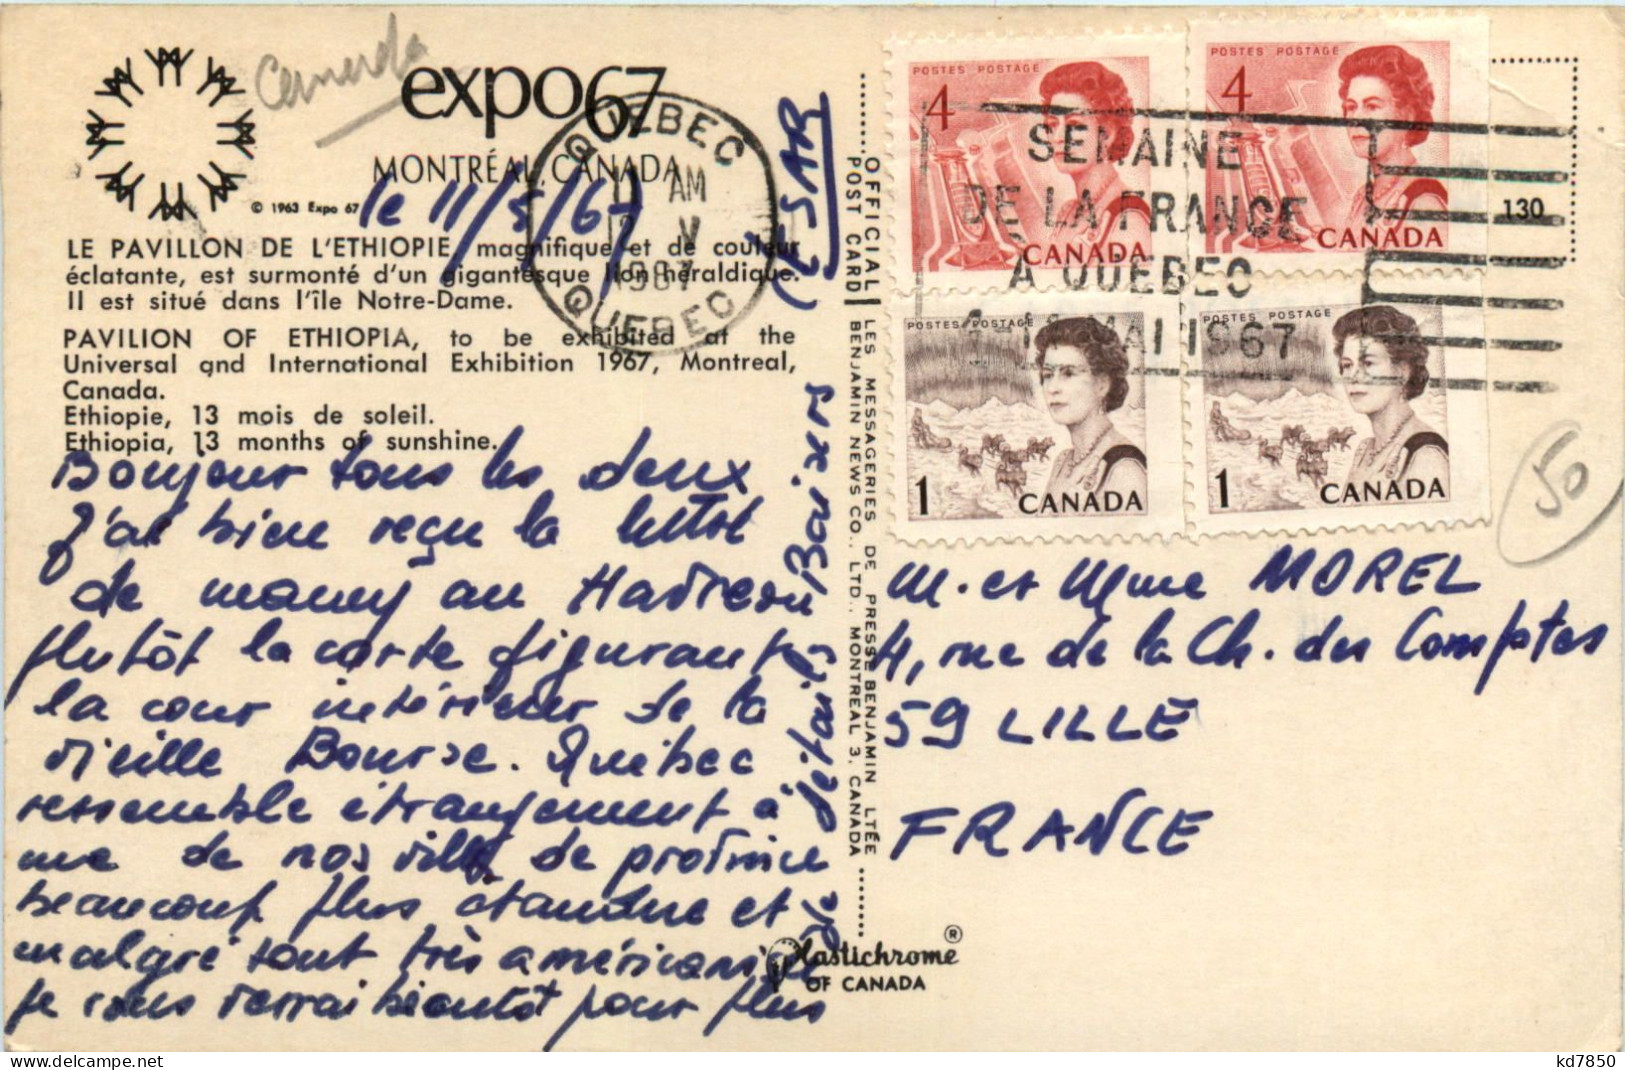 Canada
expo67
MONTRÉAL, CANADA
© 1963 Expo 67
le 11/5/67
QUÉBEC
AM
V
1967
QUEBEC
LE PAVILLON DE L'ETHIOPIE, magnifique et de couleur
éclatante, est surmonté d'un gigantesque lion héraldique.
Il est situé dans l'île Notre-Dame.
PAVILION OF ETHIOPIA, to be exhibited at the
Universal and International Exhibition 1967, Montreal,
Canada.
Ethiopie, 13 mois de soleil.
Ethiopia, 13 months of sunshine.
Bonjour tous les deux
J'ai bien reçu la lettre
de mamy au
plutôt la carte figurant
la cour intérieur de la
vieille Bourse. Québec
ressemble étrangement à
une de nos villes de province
beaucoup plus étendue et
malgré tout très américanisée
je vous verrai bientôt pour plus
de détails Baisers
CESAR
OFFICIAL LES MESSAGERIES DE PRESSE BENJAMIN LTÉE
POST CARD BENJAMIN NEWS CO., LTD., MONTREAL 3, CANADA
Plastichrome ®
OF CANADA
POSTES POSTAGE
4
CANADA
POSTES POSTAGE
4
CANADA
POSTES POSTAGE
1
CANADA
POSTES POSTAGE
1
CANADA
SEMAINE
DE LA FRANCE
A QUÉBEC
MAI 1967
130
50
M. et Mme MOREL
4, rue de la Ch. des Comptes
59 LILLE
FRANCE
kd7850